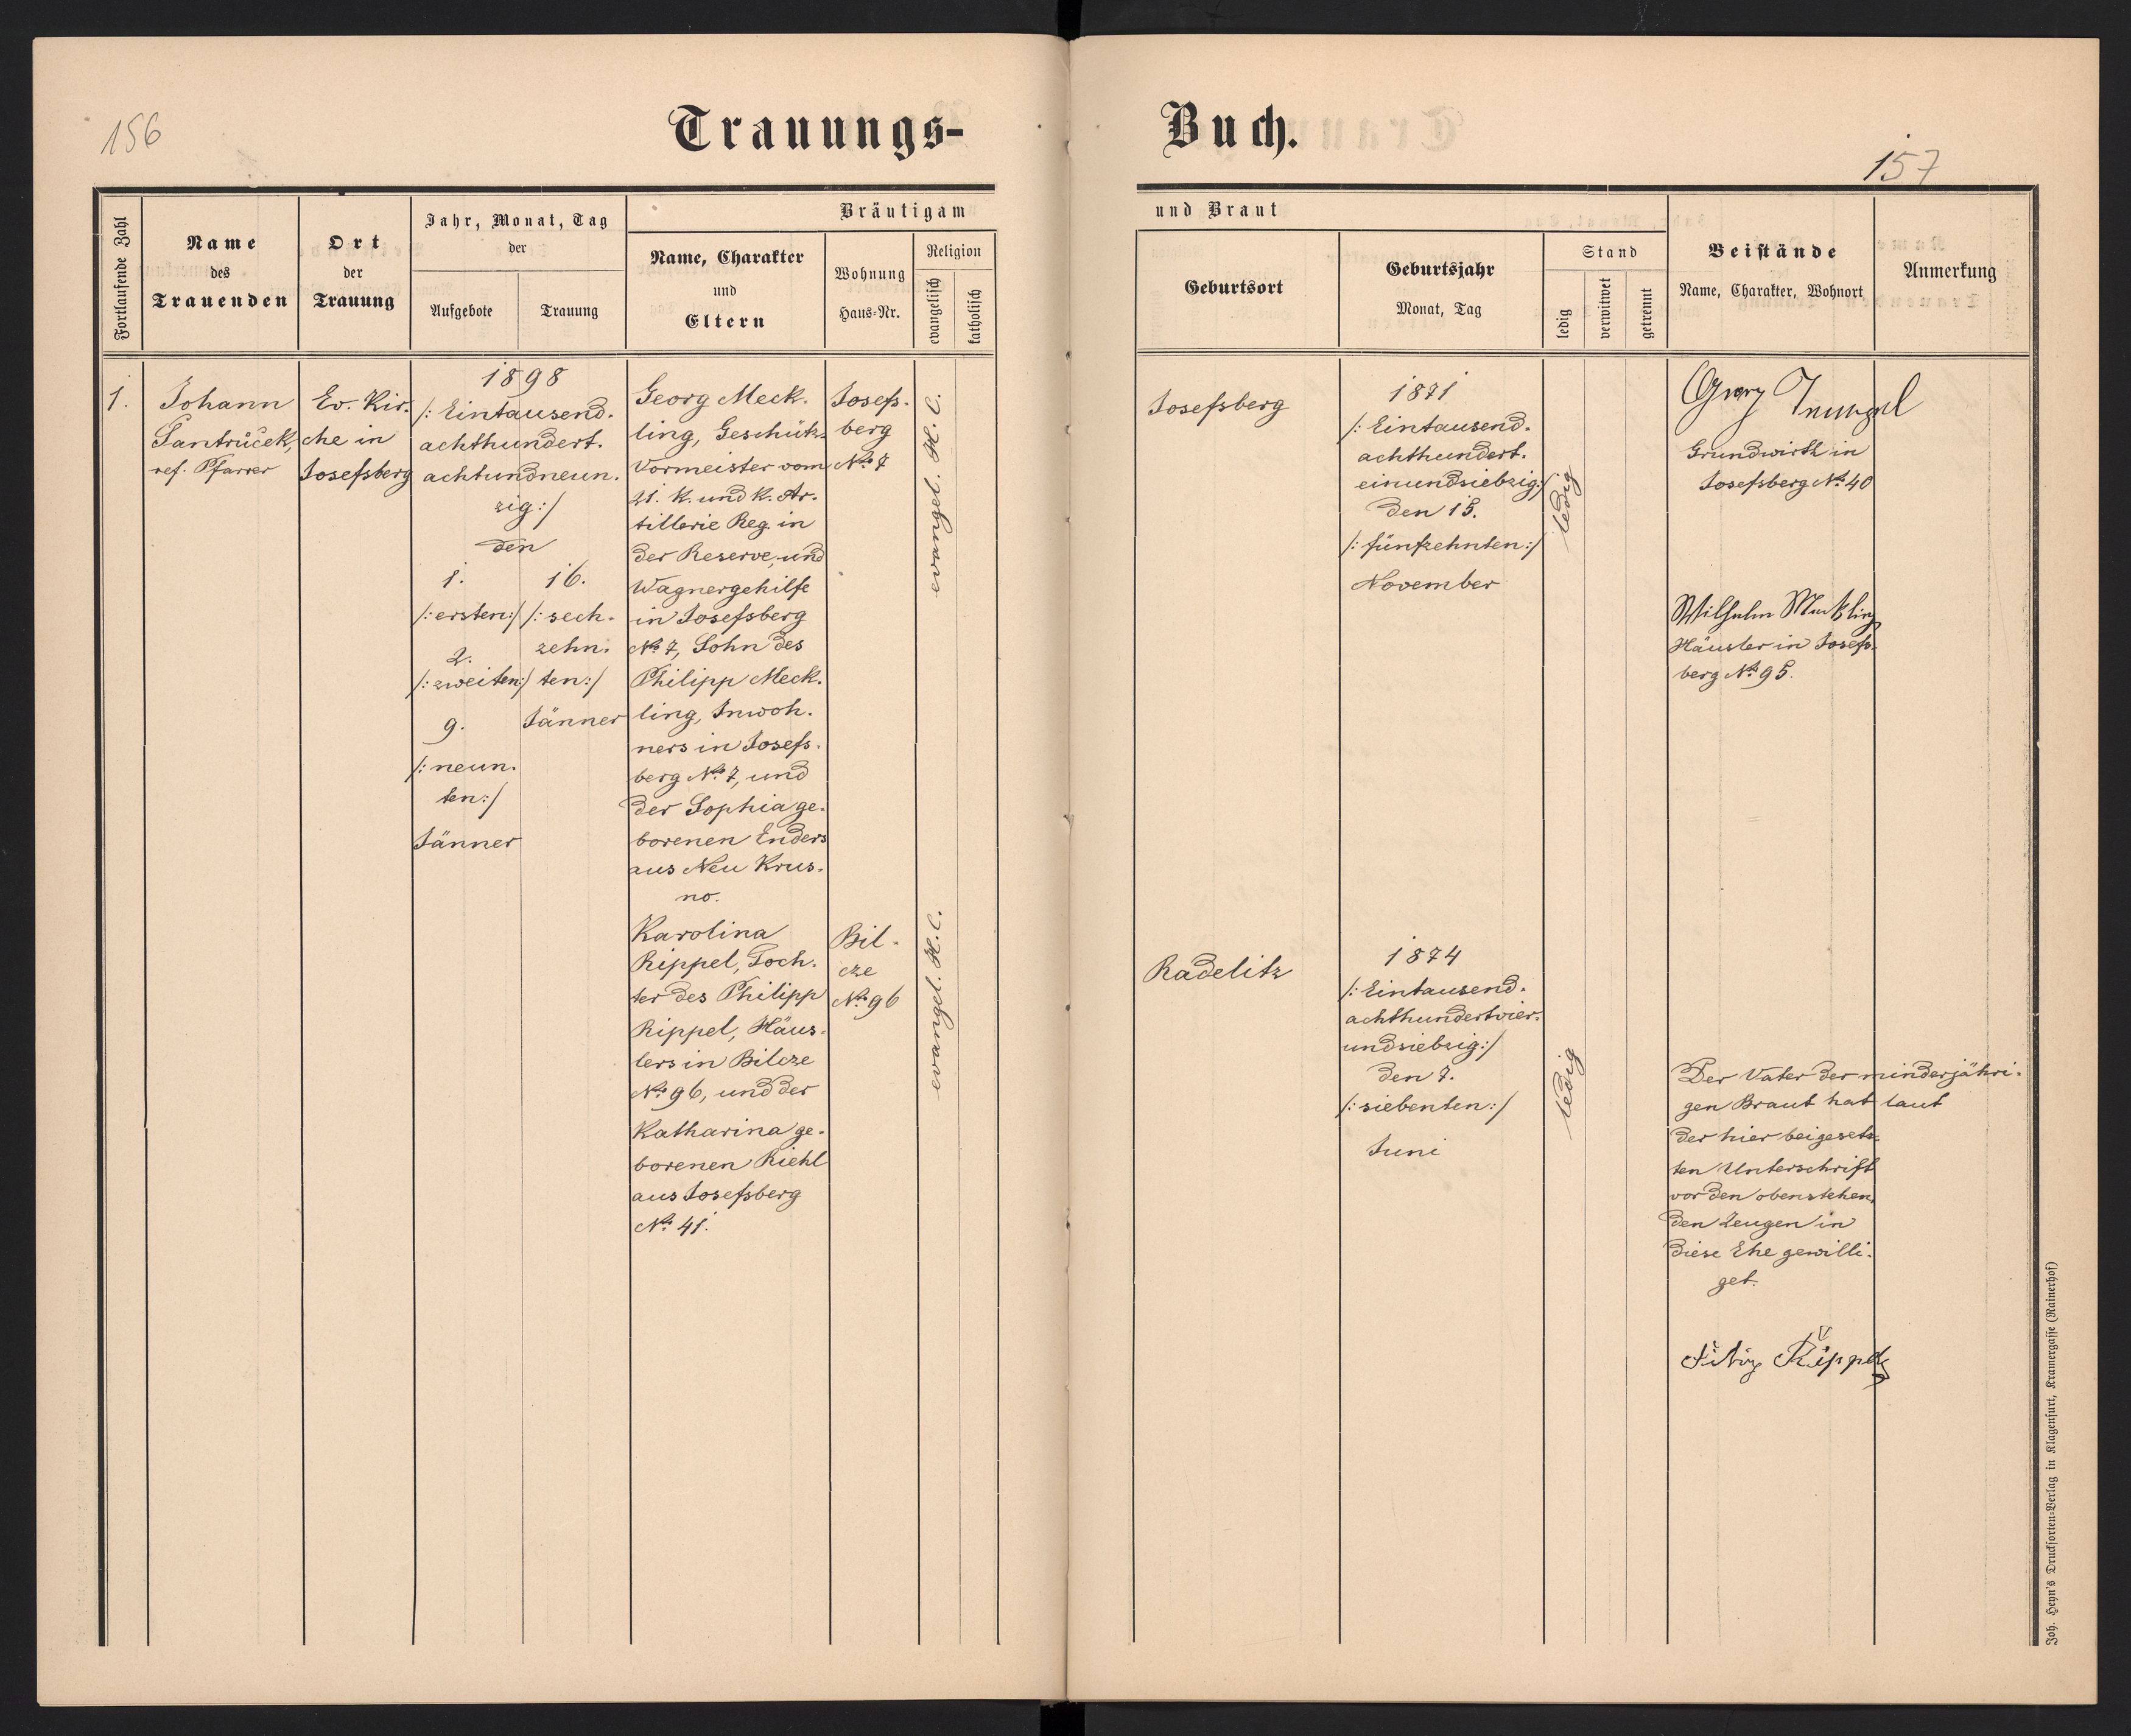 156
Trauungs-
Buch.
157
Fortlaufende Zahl
Name
des
Trauenden
Ort
der
Trauung
Jahr, Monat, Tag
der
Aufgebote
Trauung
Bräutigam
Name, Charakter
und
Eltern
Wohnung
Haus-Nr.
Religion
evangelisch
katholisch
und Braut
Geburtsort
Geburtsjahr
Monat, Tag
Stand
ledig
verwitwet
getrennt
Beistände
Name, Charakter, Wohnort
Anmerkung
1.
Johann
Santrůček,
ref. Pfarrer
Ev. Kir-
che in
Josefsberg
1898
/: Eintausend-
achthundert-
achtundneun-
zig :/
den
1.
/: ersten :/
2.
/: zweiten :/
9.
/: neun-
ten :/
Jänner
16.
/: sech-
zehn-
ten :/
Jänner
Georg Meck-
ling, Geschütz-
Vormeister vom
21. K. und K. Ar-
tillerie Reg. in
der Reserve, und
Wagnergehilfe
in Josefsberg
No. 7, Sohn des
Philipp Meck-
ling, Inwoh-
ners in Josefs-
berg No. 7, und
der Sophia ge-
borenen Enders
aus Neu Krus-
no.
Josefs-
berg
No. 7
evangel. H. C.
Josefsberg
1871
/: Eintausend-
achthundert-
einundsiebzig :/
den 15.
/: fünfzehnten :/
November
ledig
Georg
Grundwirth in
Josefsberg No. 40
Wilhelm Meckling
Häusler in Josefs-
berg No. 95.
Karolina
Rippel, Toch-
ter des Philipp
Rippel, Häus-
lers in Bilcze
No. 96, und der
Katharina ge-
borenen Riehl
aus Josefsberg
No. 41.
Bil-
cze
No. 96
evangel. H. C.
Radelitz
1874
/: Eintausend-
achthundertvier-
undsiebzig :/
den 7.
/: siebenten :/
Juni
ledig
Der Vater der minderjähri-
gen Braut hat laut
der hier beigesetz-
ten Unterschrift
vor den obenstehen-
den Zeugen in
diese Ehe gewilli-
get.
Rippel
Joh. Heyn's Drucksorten-Verlag in Klagenfurt, Kramergasse (Rainerhof)